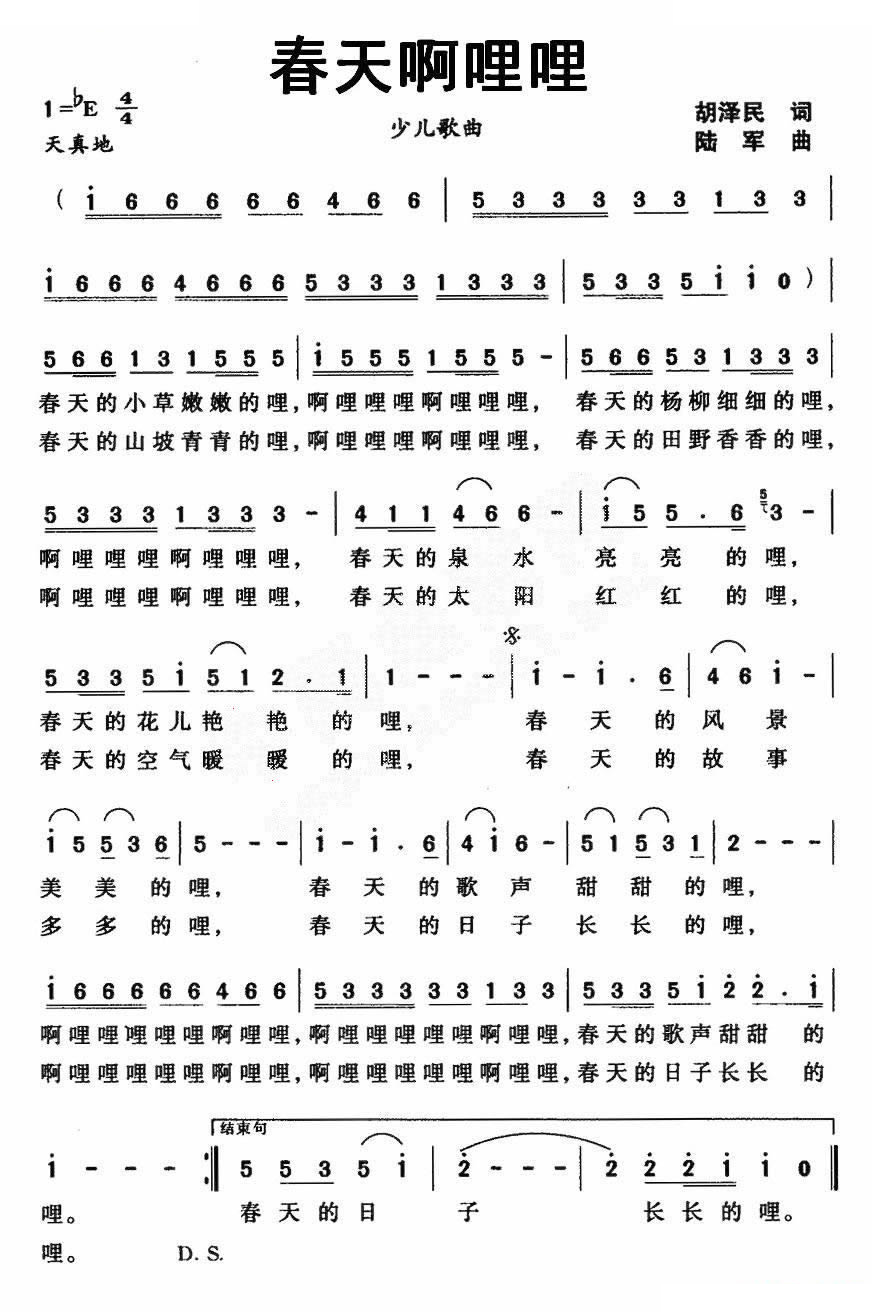 春天啊哩哩
1=♭E 4/4
少儿歌曲
胡泽民 词
天真地
陆军 曲
( i̇ 6 6 6 6 6 4 6 6 | 5 3 3 3 3 3 1 3 3 |
i̇ 6 6 6 4 6 6 6 5 3 3 3 1 3 3 3 | 5 3 3 5 i̇ i̇ 0 ) |
5 6 6 1 3 1 5 5 5 | i̇ 5 5 5 1 5 5 5 - | 5 6 6 5 3 1 3 3 3 |
春天的小草嫩嫩的哩,啊哩哩哩啊哩哩哩, 春天的杨柳细细的哩,
春天的山坡青青的哩,啊哩哩哩啊哩哩哩, 春天的田野香香的哩,
5 3 3 3 1 3 3 3 - | 4 1 1 4 6 6 6 - | i̇ 5 5 . 6 5 3 - |
啊哩哩哩啊哩哩哩, 春天的泉 水 亮 亮 的 哩,
啊哩哩哩啊哩哩哩, 春天的太 阳 红 红 的 哩,
5 3 3 5 i̇ 5 1 2 . 1 | 1 - - - | i̇ - i̇ . 6 | 4 6 i̇ - |
春天的花儿艳 艳 的 哩, 春 天 的 风 景
春天的空气暖 暖 的 哩, 春 天 的 故 事
i̇ 5 5 3 6 | 5 - - - | i̇ - i̇ . 6 | 4 i̇ 6 - | 5 1 5 3 1 | 2 - - - |
美 美 的 哩, 春 天 的 歌 声 甜 甜 的 哩,
多 多 的 哩, 春 天 的 日 子 长 长 的 哩,
i̇ 6 6 6 6 6 4 6 6 | 5 3 3 3 3 3 1 3 3 | 5 3 3 5 i̇ 2̇ 2̇ . i̇ |
啊哩哩哩哩哩啊哩哩,啊哩哩哩哩哩啊哩哩,春天的歌声甜甜 的
啊哩哩哩哩哩啊哩哩,啊哩哩哩哩哩啊哩哩,春天的日子长长 的
结束句
i̇ - - - :‖ 5 5 3 5 i̇ | 2̇ - - - | 2̇ 2̇ 2̇ i̇ i̇ 0 ‖
哩。 春天的日 子 长长的哩。
哩。 D. S.